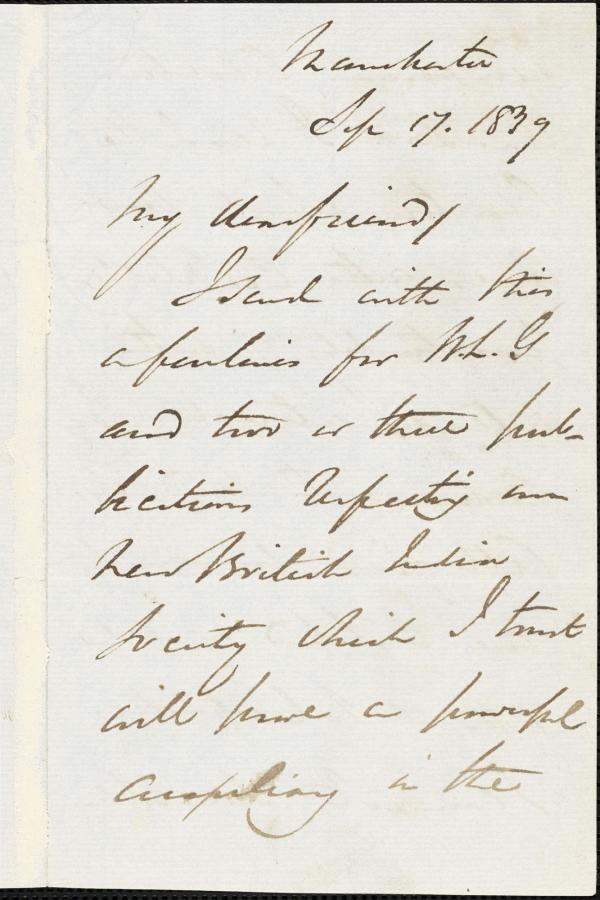 Manchester
Sep 17. 1839
My dear friend/
I send with this
a few lines for W.L.G
and two or three pub-
lications respecting our
New British India
Society which I trust
will prove a powerful
auxiliary in the